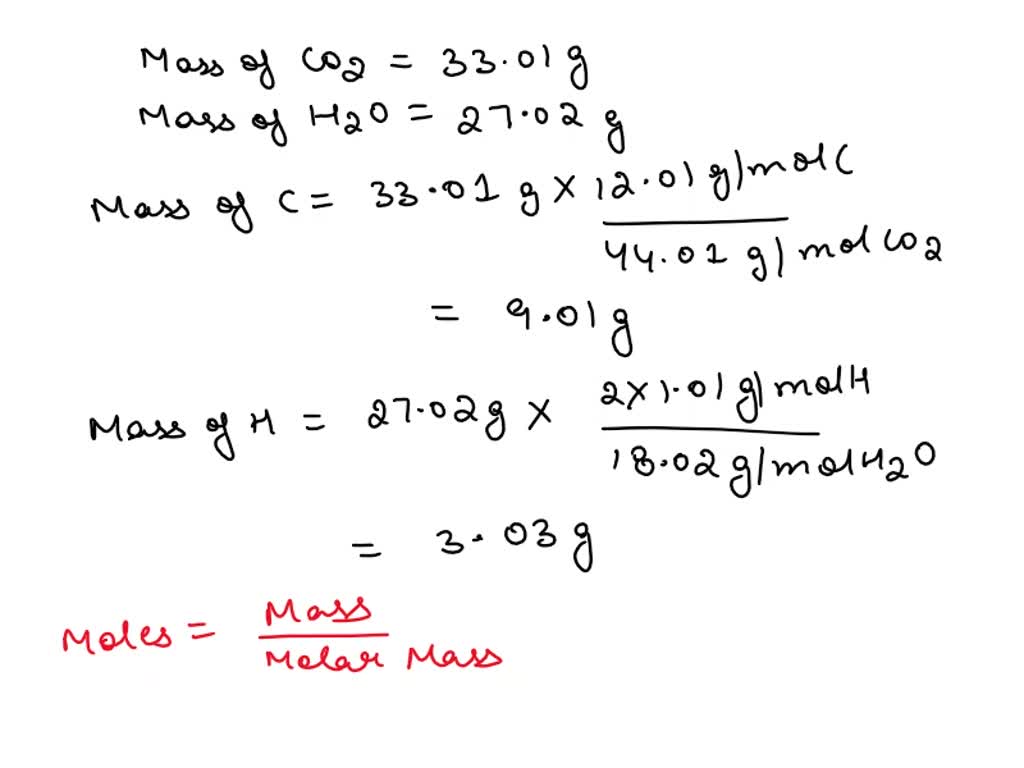 Mass of CO2 = 33.01 g
Mass of H2O = 27.02 g
Mass of C = 33.01 g × 12.01 g/mol C
44.01 g/mol CO2
= 9.01 g
Mass of H = 27.02 g × 2×1.01 g/mol H
18.02 g/mol H2O
= 3.03 g
Moles = Mass
Molar Mass